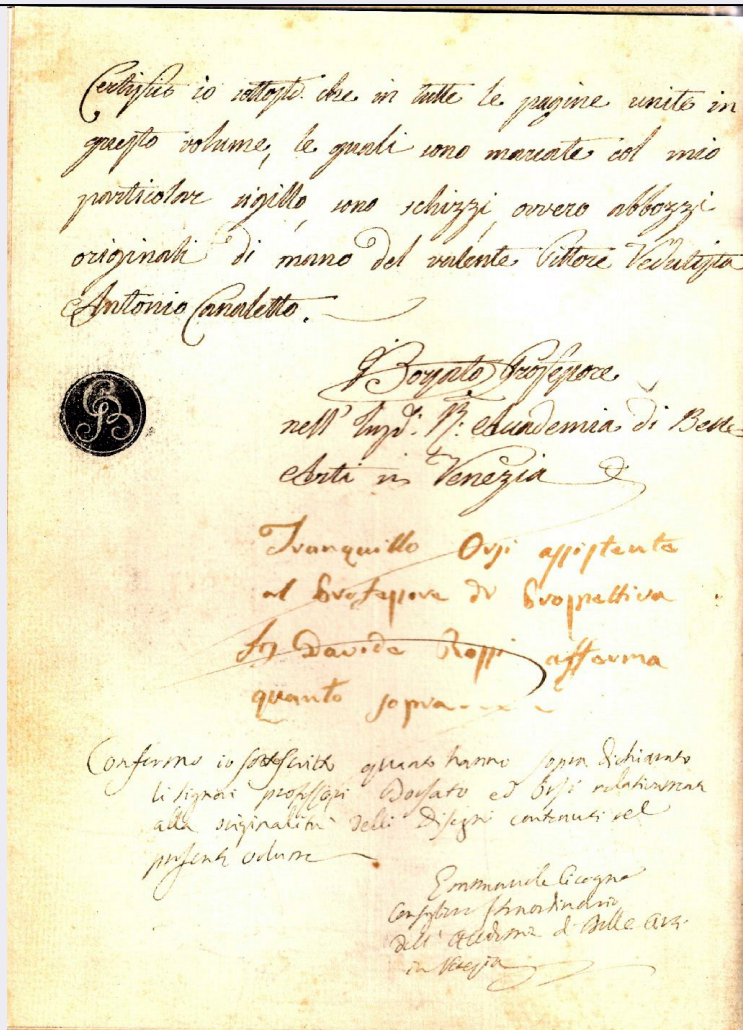 Certifico io sottosto. che in tutte le pagine unite in
questo volume, le quali sono marcate col mio
particolar sigillo, sono schizzi, ovvero abbozzi
originali di mano del valente Pittore Vedutista
Antonio Canaletto.
GB
G Borsato Professore
nell' R. Accademia di Belle
Arti in Venezia
Tranquillo Orsi assistente
al Professore di Prospettiva
Davide Rossi afferma
quanto sopra
Confermo io sottoscritto quanto hanno sopra dichiarato
li signori professori Borsato ed Orsi relativamente
alla originalità delli Disegni contenuti nel
presente volume
Emmanuele Cicogna
Consigliere straordinario
dell' Accademia di Belle Arti
in Venezia